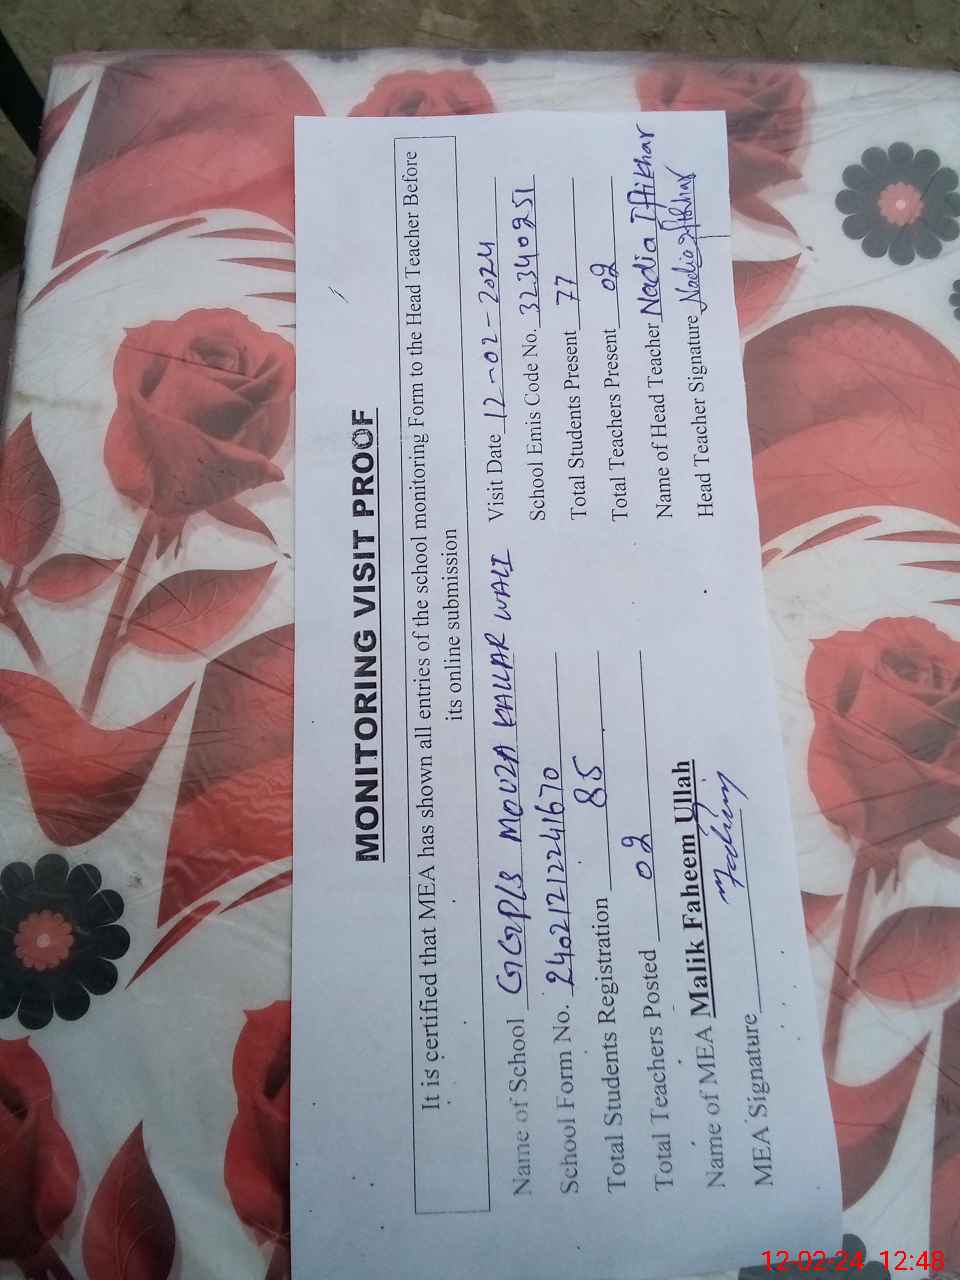 MONITORING VISIT PROOF
It is certified that MEA has shown all entries of the school monitoring Form to the Head Teacher Before
its online submission
Name of School GGPLS MOUZA KALLAR WALI Visit Date 12-02-2024
School Form No. 24021212241670 School Emis Code No. 32340251
Total Students Registration 85 Total Students Present 77
Total Teachers Posted 02 Total Teachers Present 02
Name of MEA Malik Faheem Ullah Name of Head Teacher Nadia Iftikhar
MEA Signature Faheem Head Teacher Signature Nadia Iftikhar
12-02-24 12:48